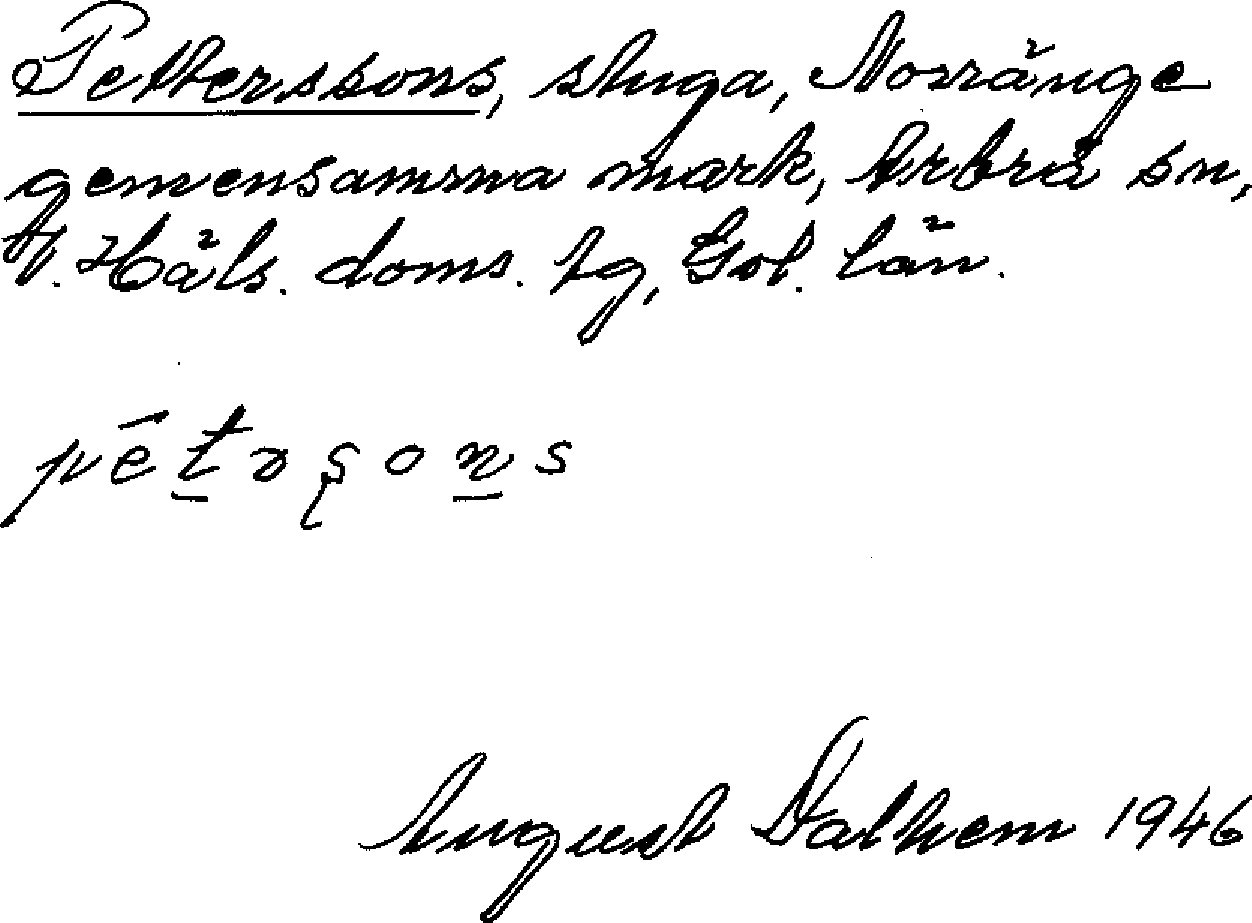 Petterssons, stuga, Norränge
gemensamma mark, Arbrå sn,
V. Häls. doms. tg, Gvl. län.
pētərsons
August Dalhem 1946